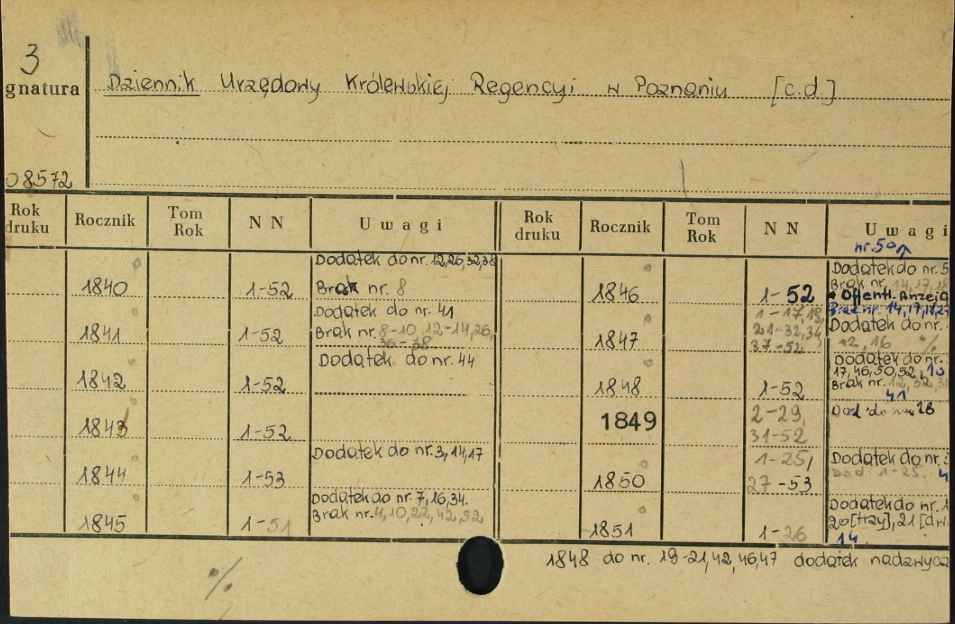 3
gnatura
Dziennik Urzędowy Królewskiej Regencyi w Poznaniu [c.d.]
08572
Rok druku Rocznik Tom Rok NN Uwagi Rok druku Rocznik Tom Rok NN Uwagi
nr. 50
1840 1-52 Dodatek do nr. 12,26,32,38
Brak nr. 8
1841 1-52 Dodatek do nr. 41
Brak nr. 8-10, 12-14, 26,
36-38
1842 1-52 Dodatek do nr. 44
1843 1-52
1844 1-53 Dodatek do nr. 3,14,17
1845 1-51 Dodatek do nr. 7,16,34.
Brak nr. 4,10,22,42,52
1846 1-52 Dodatek do nr. 5
Brak nr. 14,17,18
Öffentl. Anzeig
1847 1-17,19,
21-32,34
37-52 Dodatek do nr.
12,16
1848 1-52 Dodatek do nr.
17,46,50,52,10
Brak nr. 12,32,
41
1849 2-29,
31-52 Dod do nr 28
1850 1-25,
27-53 Dodatek do nr.
Dod. 1-25.
1851 1-26 Dodatek do nr. 1
20[trzy],21[dw
14
1848 do nr. 19-21,42,46,47 dodatek nadzwycz
%